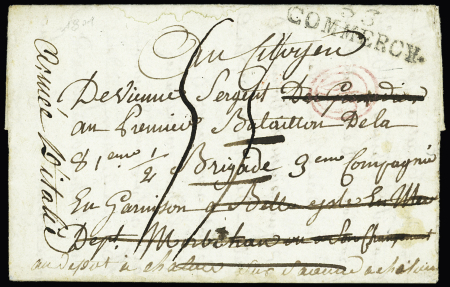 53
COMMERCY.
Au Citoyen
Devienne Sergent De Grenadier
au Premier Bataillon De la
81eme 1/2 Brigade 3eme Compagnie
En Garnison a Belle isle En Mer
Dept. Morbihan ou a Son
au depot a chalons
armée d'italie